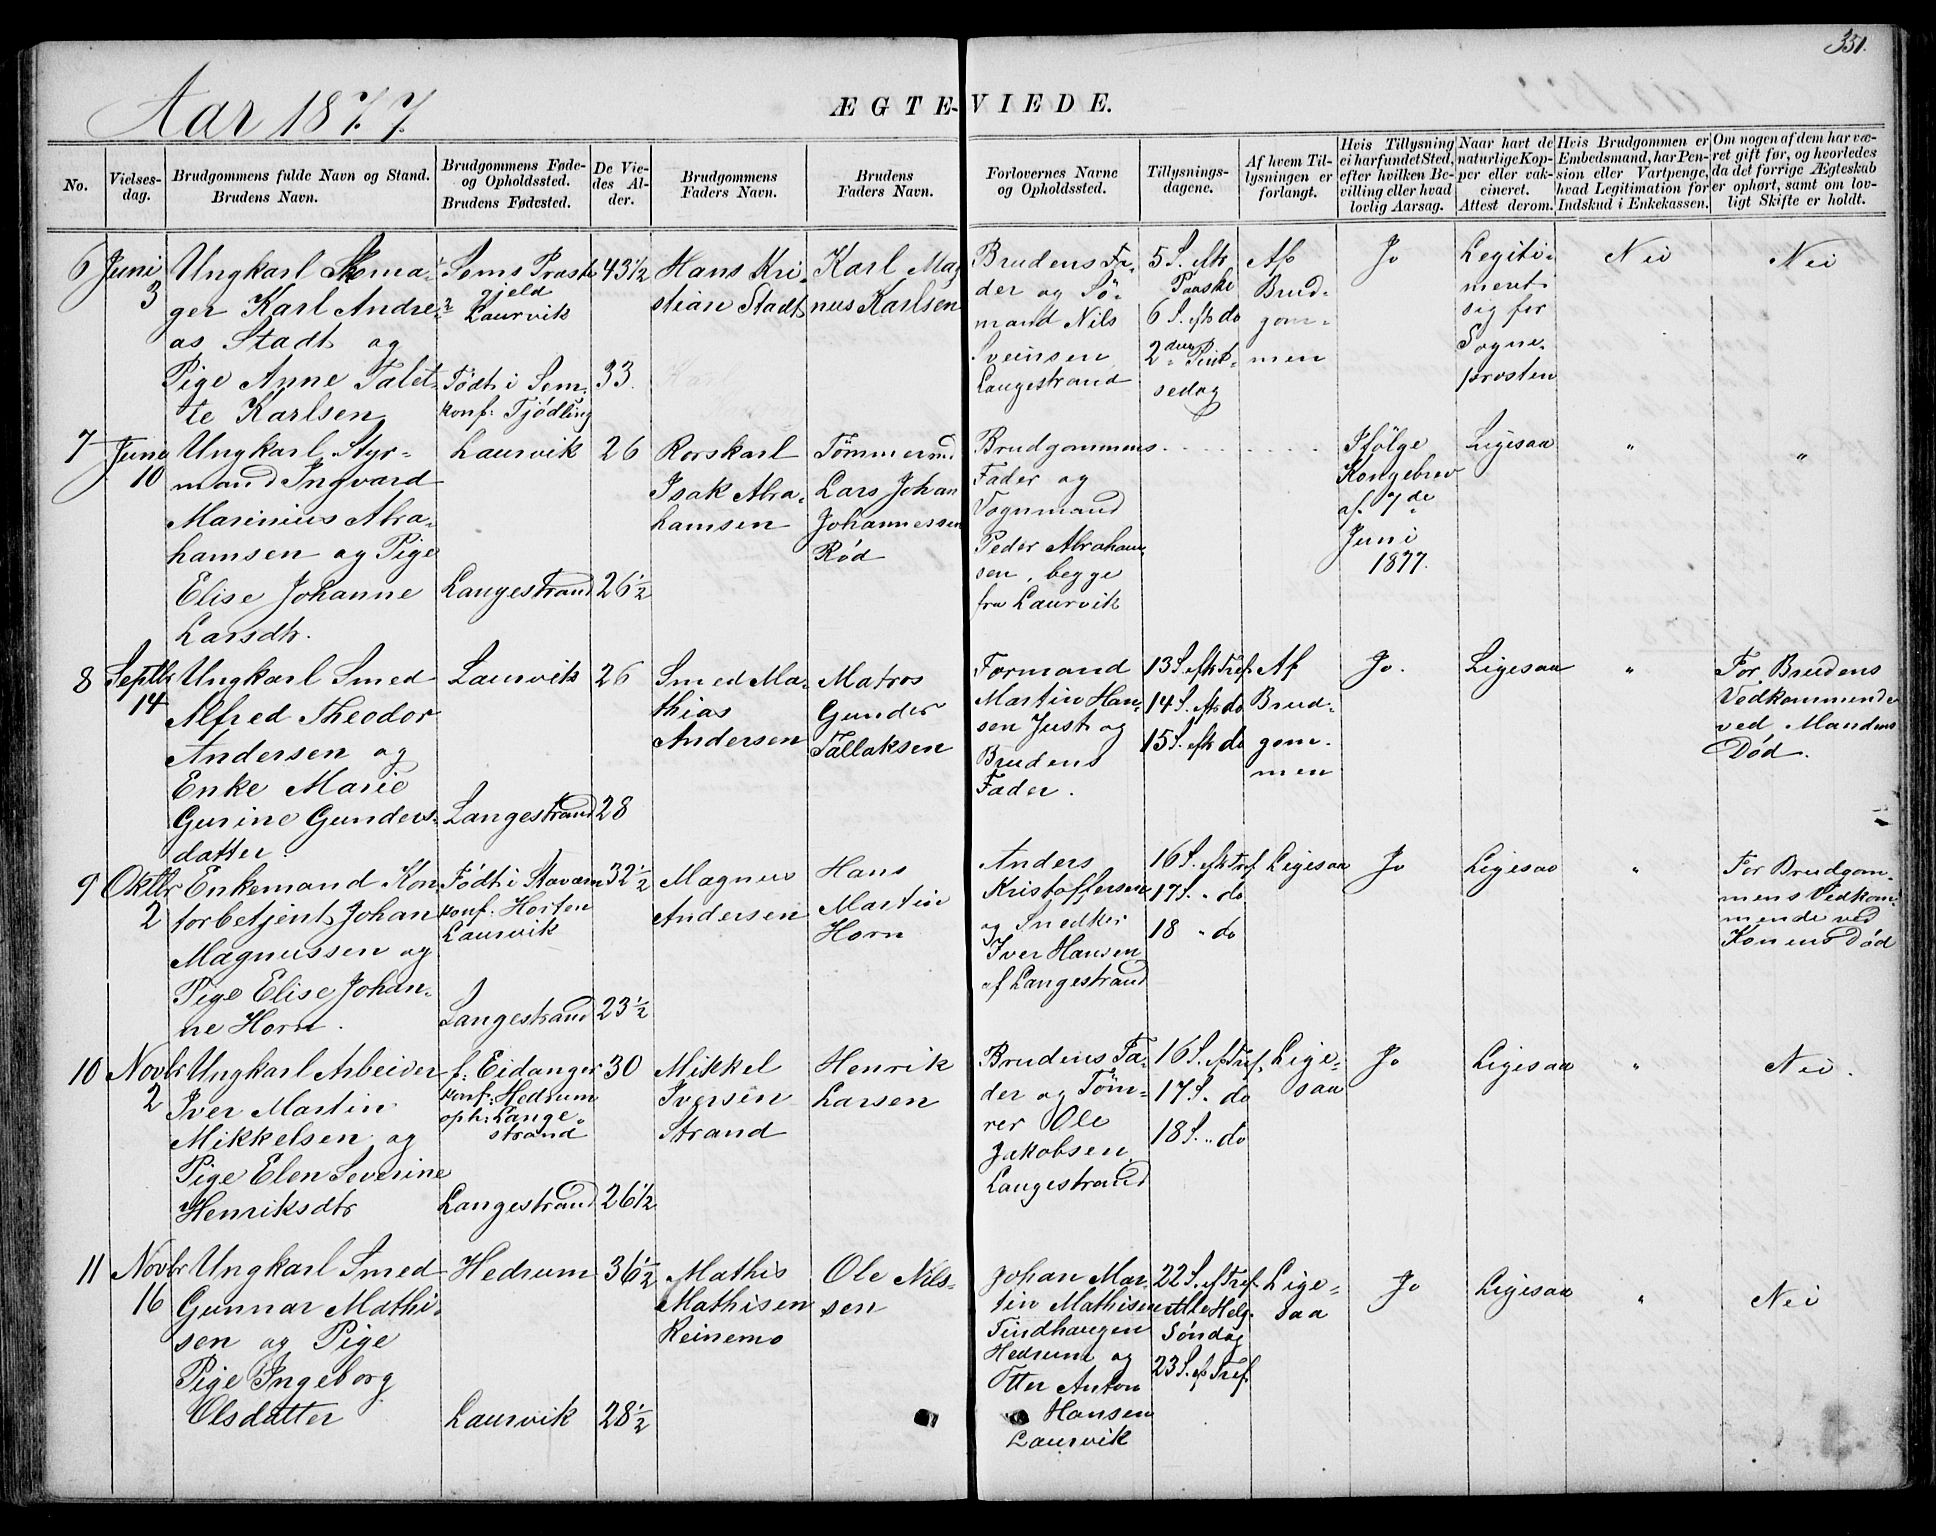 331.
Aar 1877.
ÆGTE-VIEDE.
No.
Vielses-
dag.
Brudgommens fulde Navn og Stand.
Brudens Navn.
Brudgommens Føde-
og Opholdssted.
Brudens Fødested.
De Vie-
des Al-
der.
Brudgommens
Faders Navn.
Brudens
Faders Navn.
Forlovernes Navne
og Opholdssted.
Tillysnings-
dagene.
Af hvem Til-
lysningen er
forlangt.
Hvis Tillysning
ei har fundet Sted,
efter hvilken Be-
villing eller hvad
lovlig Aarsag.
Naar havt de
naturlige Kop-
per eller vak-
cineret.
Attest derom.
Hvis Brudgommen er
Embedsmand, har Pen-
sion eller Vartpenge,
hvad Legitimation for
Indskud i Enkekassen.
Om nogen af dem har væ-
ret gift før, og hvorledes
da det forrige Ægteskab
er ophørt, samt om lov-
ligt Skifte er holdt.
6
Juni
3
Ungkarl Skoma-
ger Karl Andre-
as Stadt og
Pige Anne Talet-
te Karlsen
Sems Præste
gjeld
Laurvik
Født i Sem
konf: Tjødling
43 1/2
33.
Hans Kri-
stian Stadt
Karl Mag
nus Karlsen
Brudens Fa-
der og Sö-
mand Nils
Sveinsen
Langestrand
5 S. eftr
Paaske
6 S. eftr do
2den Pint-
sedag
Af
Brud-
gom-
men
Jo
Legiti-
meret
sig for
Sogne-
presten
Nei
Nei
7
Juni
10
Ungkarl Styr-
mand Ingvard
Marinius Abra-
hamsen og Pige
Elise Johanne
Larsdtr.
Laurvik
Langestrand
26
26 1/2
Rorskarl
Isak Abra-
hamsen
Tømmermd
Lars Johan
Johannessen
Rød
Brudgommens
Fader og
Vognmand
Peder Abraham
sen, begge
fra Laurvik
Ifølge
Kongebrev
af 7de
Juni
1877.
Ligesaa
"
"
8
Septbr
14
Ungkarl Smed
Alfred Theodor
Andersen og
Enke Marie
Gurine Gunders-
datter.
Laurvik
Langestrand
26
28
Smed Ma-
thias
Andersen
Matros
Gunder
Tallaksen
Formand
Martin Han-
sen Just og
Brudens
Fader.
13 S. eftr Tref.
14 S. eftr do
15 S. eftr do
Af
Brud-
gom-
men
Jo.
Ligesaa
"
For Brudens
Vedkommende
ved Mandens
Død.
9
Oktbr
2
Enkemand Kon
torbetjent Johan
Magnussen og
Pige Elise Johan-
ne Horn.
Født i Staværn
konf: Horten
Laurvik
Langestrand
32 1/2
23 1/2
Magnus
Andersen
Hans
Martin
Horn
Anders
Kristoffersen
og Snedker
Iver Hansen
af Langestrand
16 S. eftr Tref
17 S. " do
18 " do
Ligesaa
Jo
Ligesaa
"
For Brudgom-
mens Vedkom-
mende ved
Konens Død
10
Novbr
2
Ungkarl Arbeider
Iver Martin
Mikkelsen og
Pige Elen Severine
Henriksdtr
f: Eidanger
konf: Hedrum
oph: Lange-
strand
Langestrand
30
26 1/2
Mikkel
Iversen
Strand
Henrik
Larsen
Brudens Fa-
der og Töm-
rer Ole
Jakobsen
Langestrand
16 S. ef Tref.
17 S. do
18 S. " do
Lige-
saa
Jo
Ligesaa
"
Nei.
11
Novbr
16
Ungkarl Smed
Gunnar Mathi-
sen og Pige
Pige Ingeborg
Olsdatter
Hedrum
Laurvik
36 1/2
28 1/2
Mathis
Mathisen
Reinemo
Ole Nils-
sen
Johan Mar-
tin Mathisen
Tindhaugen
Hedrum og
Otter Anton
Hansen
Laurvik
22 S. ef Tref.
Alle Helg.
Søndag
23 S. ef Tref.
Lige-
saa
Jo
Ligesaa
"
Nei